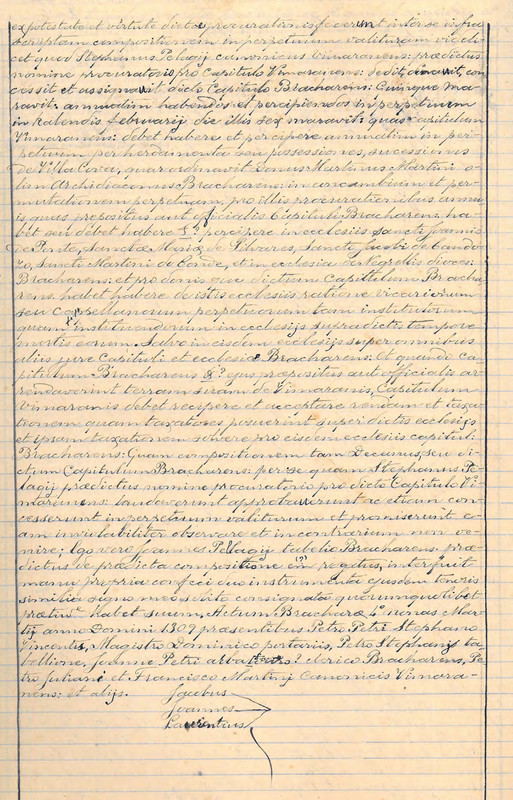 ex potestate et virtute dictae procurationis fecerunt inter se infra
scriptam compositionem in perpetuum valituram videli-
cet quod Stephanus Pelagij canonicus Vimaranens: praedictus
nomine procuratorio pro Capitulo Vimaranens: dedit, donavit, con
cessit et assignavit dicto Capitulo Bracharens: Quinque ma-
ravit: annuatim habendos et percipiendos in perpetuum
in Kalendis Februarij de illis sex maravit: quas Capitulum
Vimaranens: debet habere et percipere annuatim in per-
petuum per herdamenta seu possessiones, sucessionis
de Villa Cova, quae ordinavit Donus Martinus Martini o-
lim Archidiaconus Bracharens: in concambium et per-
mutationem perpetuam, pro illis procurationibus annu-
is quas propositus aut officialis Capituli Bracharens: ha-
bet seu debet habere percipere in ecclesiis Sancti Joannis
de Ponte, Sanctae Mariae de Silvares, Sancti de Cando-
zo, Sancti Martini de Conde, et in ecclesia de Negrellis dioces:
Bracharens: et pro donis quae dictum Capitulum Bracha-
rens. habet habere de istis ecclesiis ratione vicariorum
seu Capellanorum perpetuorum tam institutorum
quam instituendorum in ecclesijs supradictis tempore
mortis eorum. Salvo in eisdem ecclesijs super omnibus
aliis jure Capituli et ecclesiae Bracharens: Et quando Ca-
pitulum Bracharens ejus propositus aut officialis ar-
rendaverint terram suam de Vimaranis, Capitulum
Vimaranis debet recipere et acceptare rendam et taxa-
tionem quam taxatores posuerint super dictis ecclesijs
et ipsam taxationem solvere pro eisdem ecclesiis capitul:
Bracharens: Quam compositionem tam Decanus, seu di-
ctum Capitulum Bracharens: per se quam Stephanus Pe-
lagij praedictus nomine procuratorio pro dicto Capitulo Vi-
maranens: laudaverunt aprobaverunt ac etiam con-
cesserunt in perpetuum valituram et promiserunt e-
am inviolabiliter observare et in contrarium non ve-
nire; Ego vero Joannes Pelagij tabelio Bracharens: prae-
dictus de praedicta compositione rogatus, interfui et
manu propria confeci duo instrumenta ejusdem tenoris
similia signo meo solito consignata quorum quilibet
habet suum. Actum Bracharae 4º nonas Mar-
tij anno Domini 1309 praesentibus Petro Petri Stephano
Vincentis, Magistro Dominico portariis, Petro Stephanij ta-
bellione, Joanne Petri clerico Bracharens, Pe
tro Juliani et Francisco Martinij Canonicis Vimara-
nens: et alijs.
Jacobus
Joannes
Laurentius